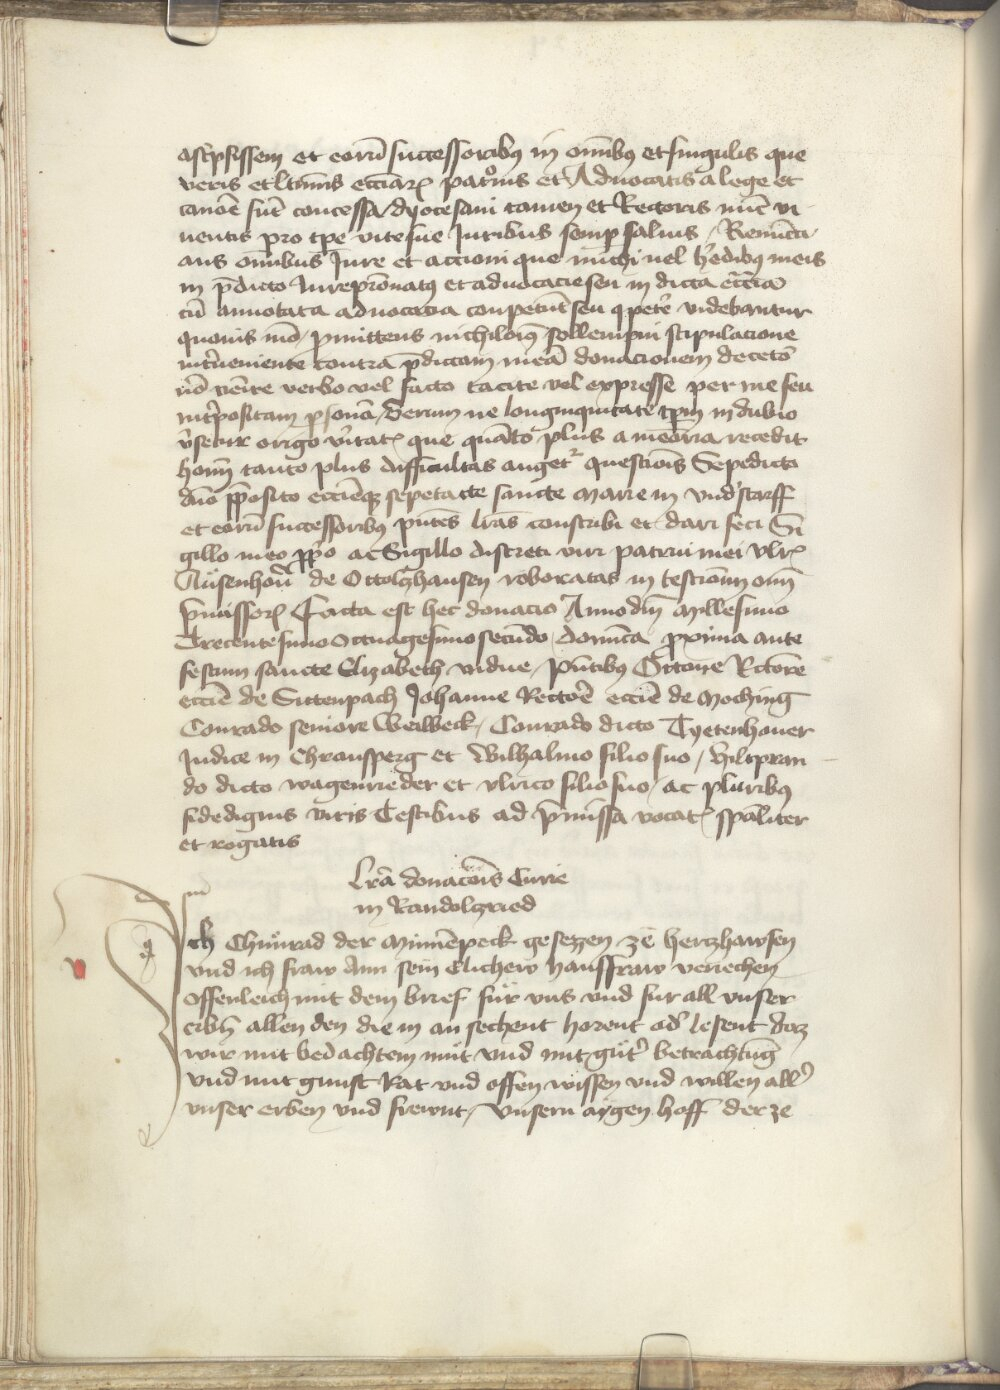 ascripsissem et eorū successoribꝰ in om̄ibꝰ et singulis que
veris et ltimis ecciarꝝ patronis et Aduocatis a lege et
canōe sūt concessa / dyocesani tamen et Rectoris nūc vi-
uentis pro tpe vite sue Juribus semꝑ saluis / Renūcia-
ans om̄ibus Jure et accioni que michi vel hēdibꝰ meis
in p̄dicto Jurepr̄onatꝰ et aduocacie seu in dicta ecc̄ia
cū annotata aduocacia conpetūt seu ꝯpetē videbantur
quouis mō / Promittens nichilomīꝰ sollempni stipulacione
intueniente contra p̄dictam meā donacionem decetō
nō venire verbo vel facto tacite vel expresse per me seu
intpositam psonā / Verum ne longinquitate tpm in dubio
vsetur origo vitatꝭ que quāto plus a meōria recedit
homī tanto plus difficultas auget questiōis Sepedicto
dn̄o pposito ecciēqꝫ sepetacte sancte Marie in vnd'starff
et eorū successoribus pn̄tes lr̄as conscribi et dari feci Si
gillo meo ppo ac Sigillo discreti viri patrui mei vlrꝭ
Aüsenhoū de Ottolczhausen roboratas in testiōnm om̄
p̄missorꝝ Facta est hec donacio Anno dn̄i Millesimo
Trecentesimo Octuagesimo secūdo / domīca proxima ante
festum sancte Elizabeth vidue / pn̄tibus Ottone Rctōre
eccīe de Sitenpach Johanne Rectorē eccīe de Moching
Conrado seniore Weilbeck / Conrado dicto Tyetenhouer
Judice in Chransperg et Wilhalmo filio suo / Hiltpran
do dicto wagenrieder et vlrico filio suo / ac pluribꝰ
fidedignis viris Testibus ad p̄missa vocatꝭ spāliter
et rogatis
Lrā donacōis Curie
in Randolczried
Ich Chunrad der Minnēpeck gesezzen ze herczhawsen
vnd ich fraw Ann sein Elichew hausfraw veriechen
offenleich mit dem brief für vns vnd für all vnser
erbn̄ allen den die in an sechent horent od' lesent daz
wir mit bedachtem müt vnd mit güt' betrachtūg
vnd mit gunst Rat vnd offen wissen vnd willen all'
vnser erben vnd frewnt / vnsern aygen hoff der ze